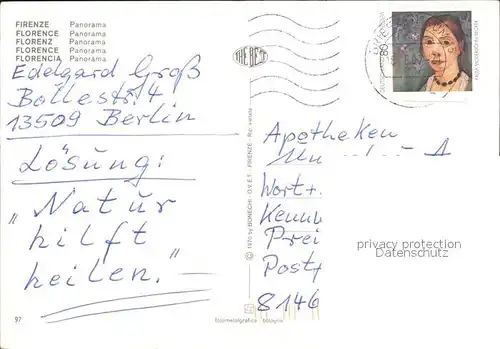 FIRENZE Panorama
FLORENCE Panorama
FLORENZ Panorama
FLORENCE Panorama
FLORENCIA Panorama
Edelgard Groß
Bollestr. 4
13509 Berlin
Lösung:
"Natur
hilft
heilen."
97
THE BEST
© 1970 by BONECHI - O.V.E.T. - FIRENZE - Rip. vietata
fotometalgrafica - bologna
80
Apotheken
Wort +
Kennw
Prei
Postf
8146
privacy protection
Datenschutz